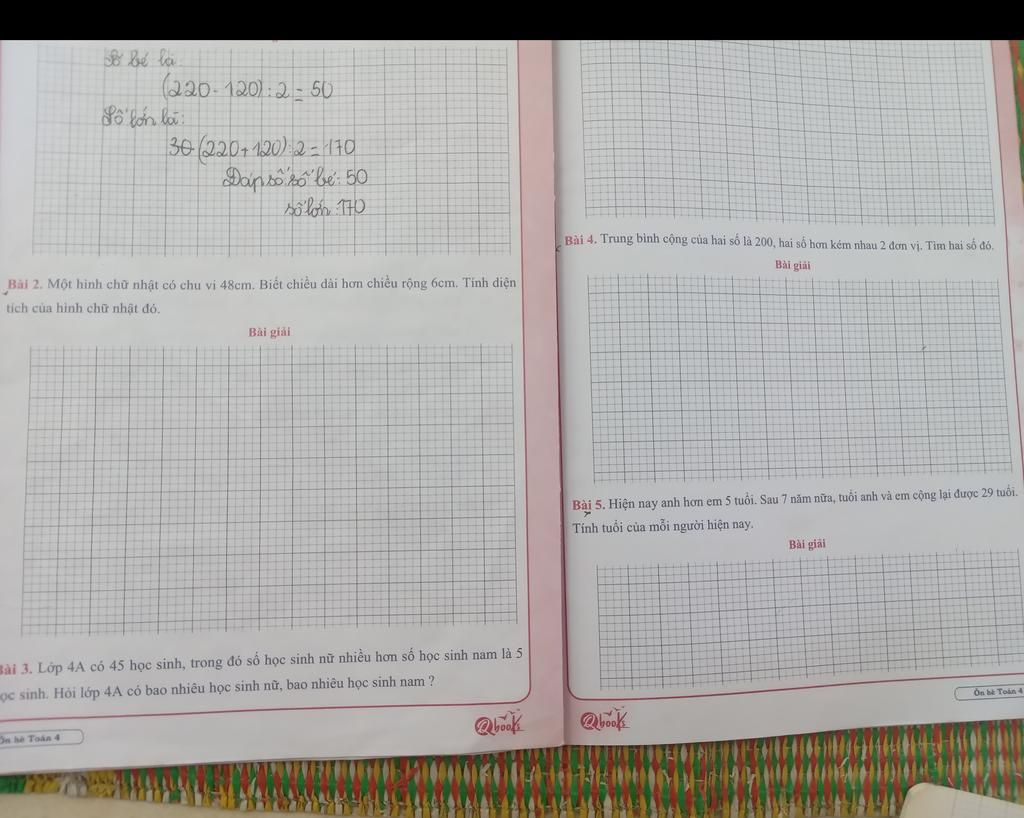 Số bé là:
(220 - 120) : 2 = 50
Số lớn là:
(220 + 120) : 2 = 170
Đáp số: số bé: 50
số lớn: 170
Bài 2. Một hình chữ nhật có chu vi 48cm. Biết chiều dài hơn chiều rộng 6cm. Tính diện
tích của hình chữ nhật đó.
Bài giải
Bài 3. Lớp 4A có 45 học sinh, trong đó số học sinh nữ nhiều hơn số học sinh nam là 5
học sinh. Hỏi lớp 4A có bao nhiêu học sinh nữ, bao nhiêu học sinh nam ?
Ôn hè Toán 4
Qbooks
Bài 4. Trung bình cộng của hai số là 200, hai số hơn kém nhau 2 đơn vị. Tìm hai số đó.
Bài giải
Bài 5. Hiện nay anh hơn em 5 tuổi. Sau 7 năm nữa, tuổi anh và em cộng lại được 29 tuổi.
Tính tuổi của mỗi người hiện nay.
Bài giải
Ôn hè Toán 4
Qbooks